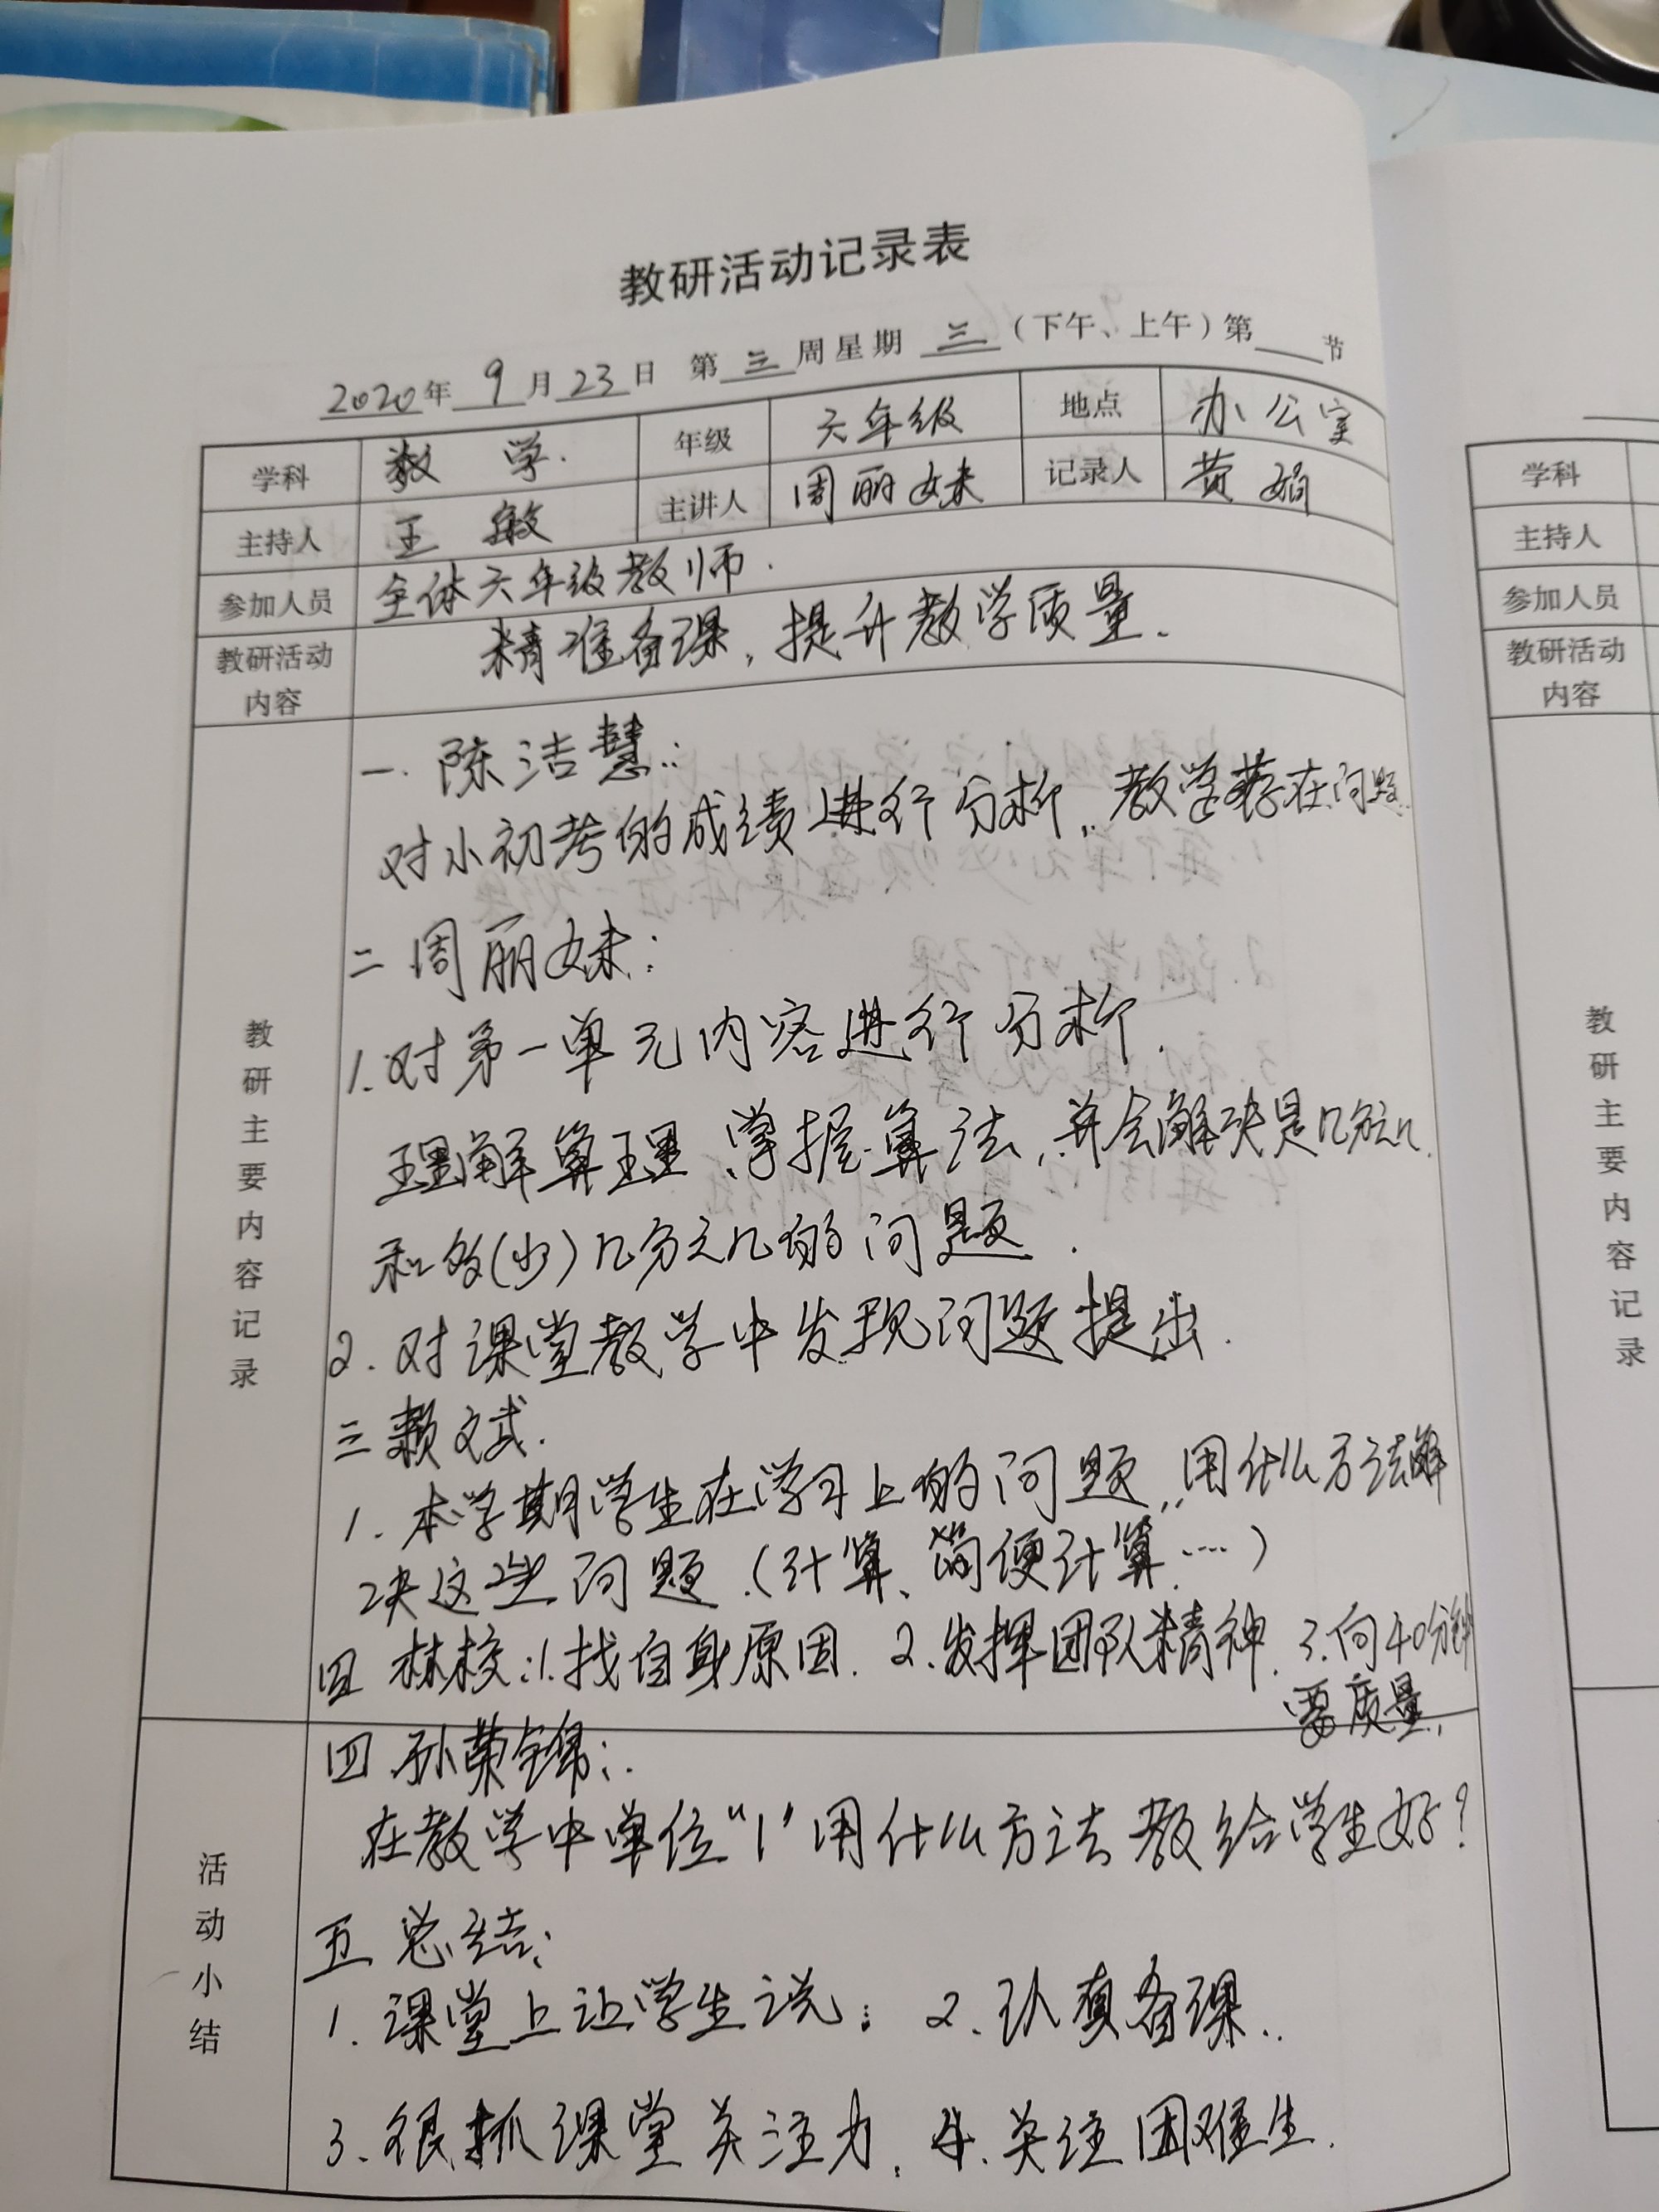 教研活动记录表
2020年 9 月 23 日 第 三 周星期 三 （下午、上午）第 节
学科 数 学. 年级 六年级 地点 办公室
主持人 王 敏 主讲人 周丽妹 记录人 黄娟
参加人员 全体六年级教师.
教研活动内容 精准备课，提升教学质量.
教研主要内容记录
一. 陈洁慧:
对小初考的成绩进行分析, 教学存在问题.
二 周丽妹:
1.对第一单元内容进行分析.
理解算理、掌握算法，并会解决是几分之几.
和多(少)几分之几的问题.
2. 对课堂教学中发现问题提出.
三 赖文武.
1. 本学期学生在学习上的问题, 用什么方法解
决这些问题.(计算、简便计算....)
四 林校:1.找自身原因. 2.发挥团队精神. 3.向40分钟
要质量.
活动小结
四 孙荣锦:
在教学中单位“1”用什么方法教给学生好?
五 总结:
1. 课堂上让学生说; 2. 认真备课.
3. 狠抓课堂关注力. 4. 关注困难生.
学科
主持人
参加人员
教研活动内容
教研主要内容记录